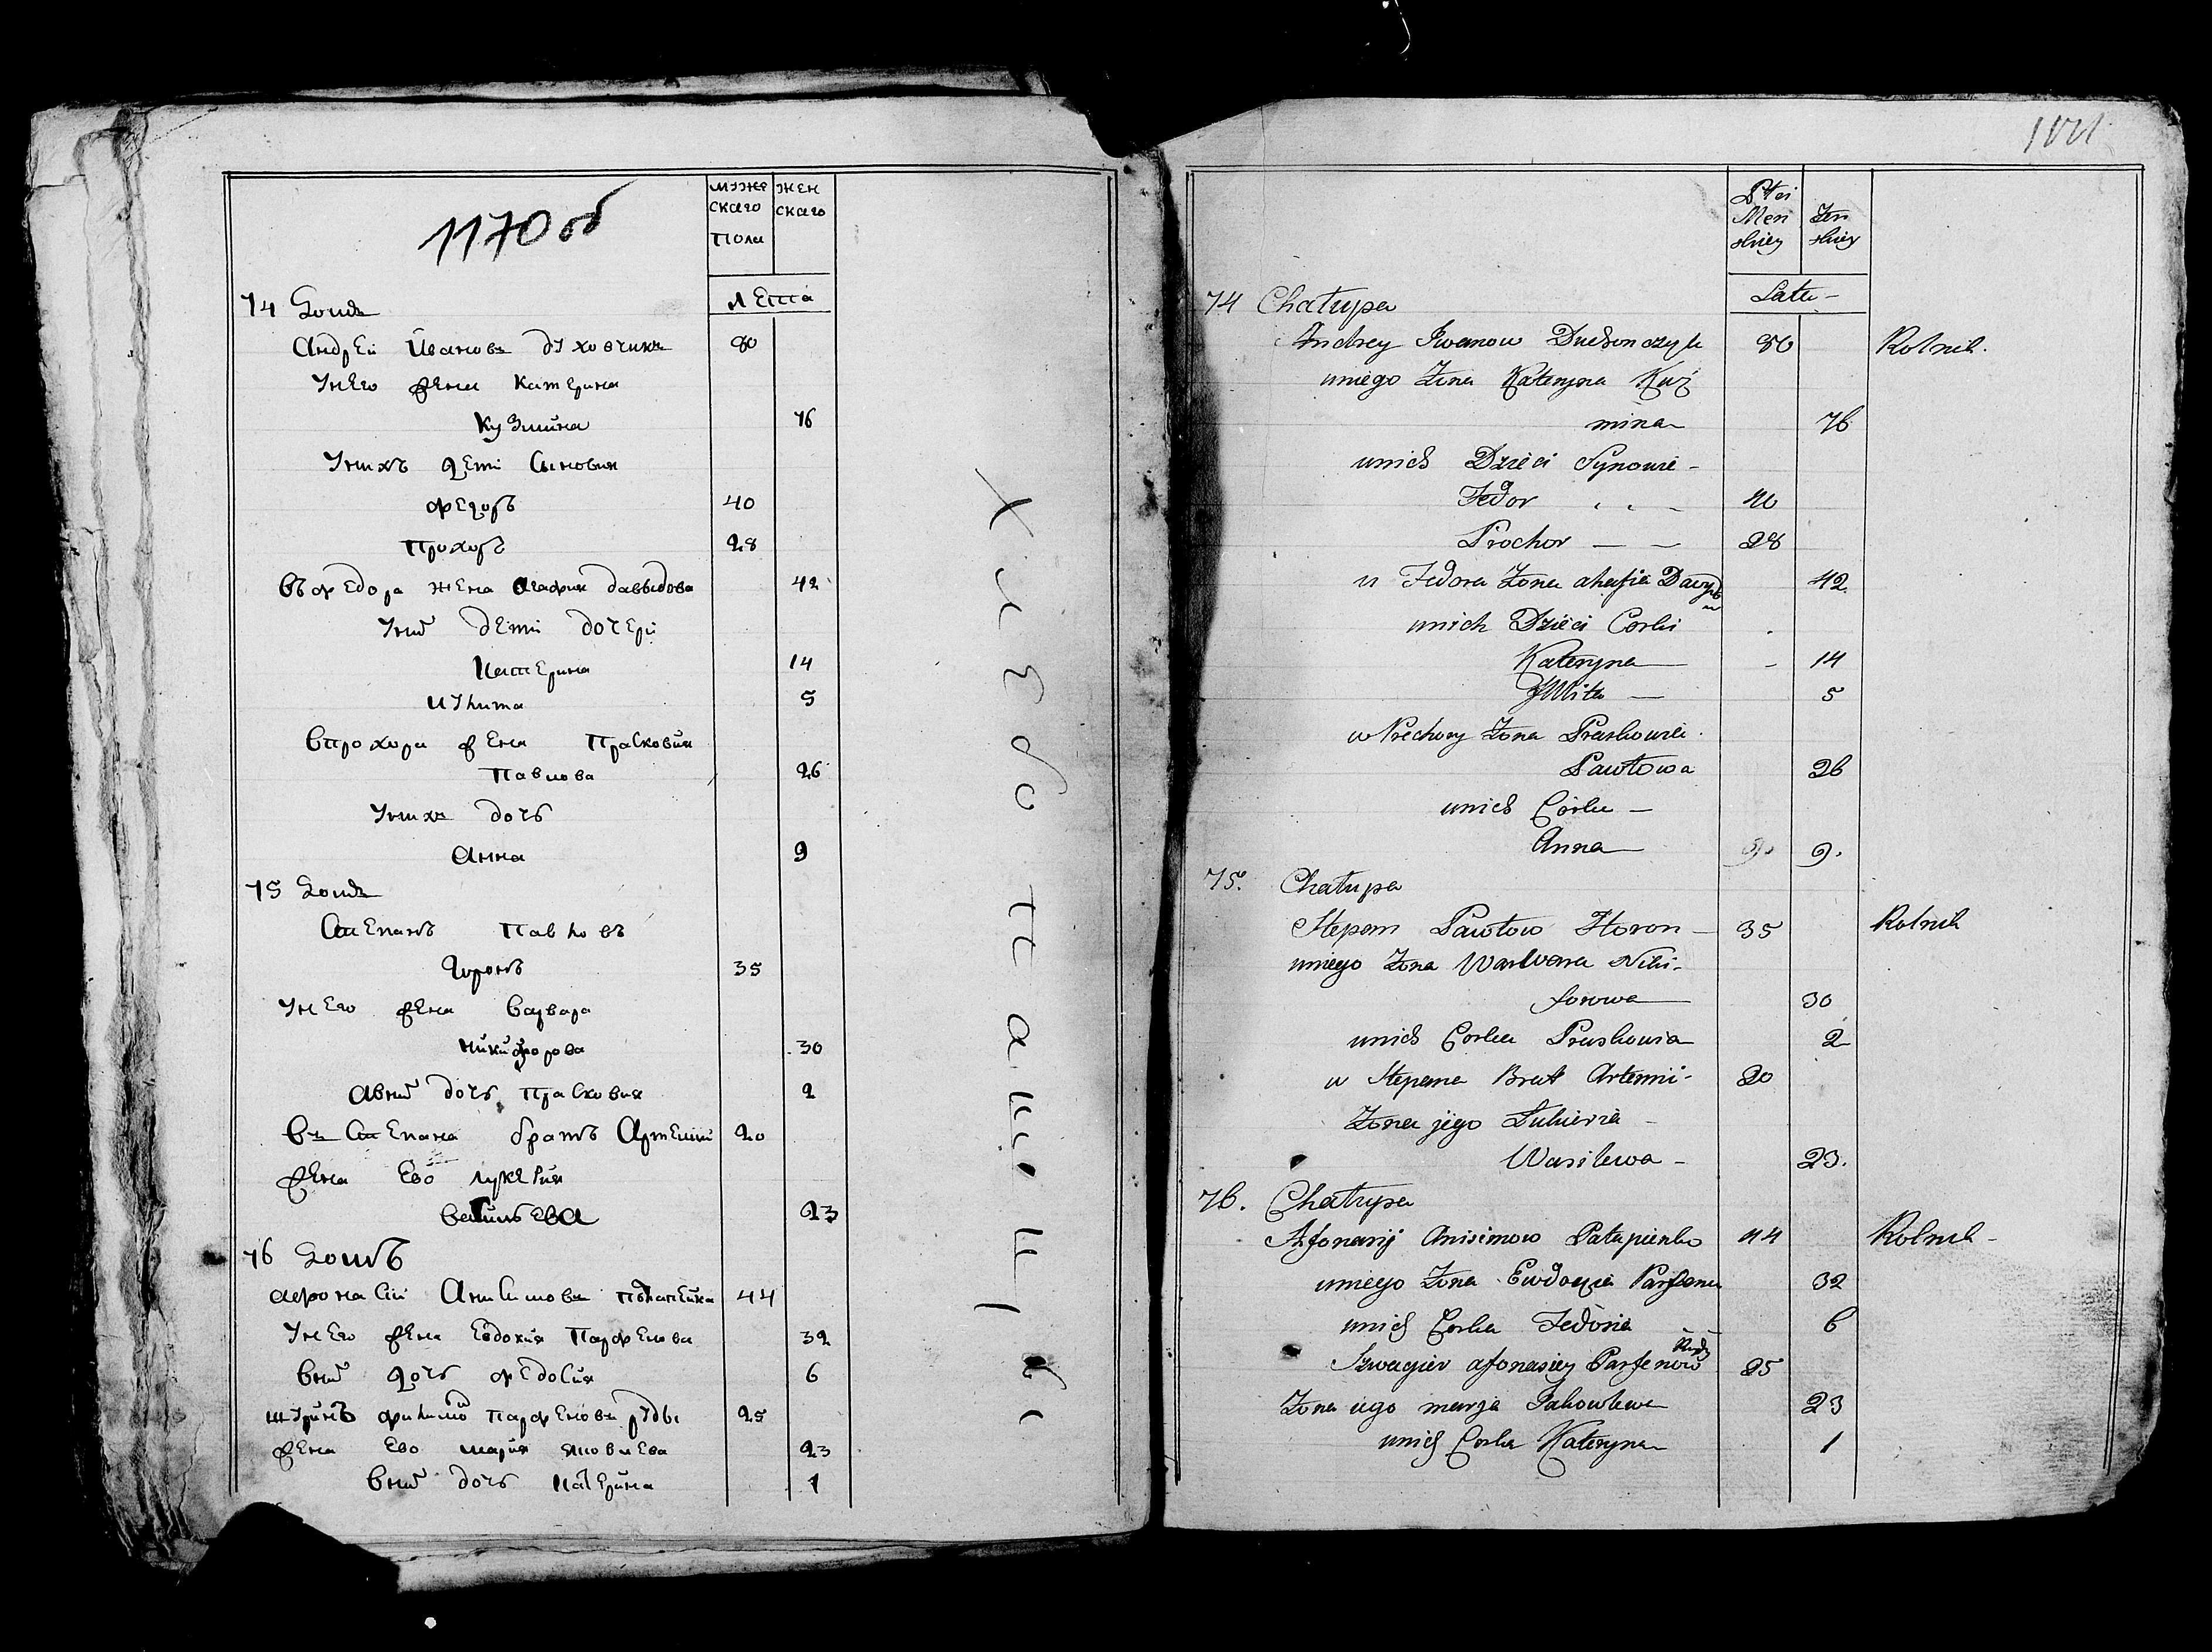 1170 об
мужескаго
пола
женскаго
лета
74 Домъ
Андрей Ивановъ Духовчикъ 80
у него жена Катерина
Кузмина 76
у нихъ дети сыновия
Федоръ 40
Прохоръ 28
въ Федора жена Агафия Давыдова 42
у ний дети дочери
Катерина 14
Улита 5
в Прохора жена Прасковия
Павлова 26
у нихъ дочь
Анна 9
75 Домъ
Степанъ Павловъ
35
у него жена Варвара
Никифорова 30
в ний дочь Прасковия 2
въ Степана братъ Артемий 20
жена ево Лукерия
Васильева 23
76 Домъ
Афонасий Анисимовъ 44
у него жена Евдокия Парфенова 32
в ний дочь Федосия 6
шуринъ Парфеновъ Руды 25
жена ево Мария Яковлева 23
в ний дочь Катерина 1
Хлебопашецъ
Płci
Męs
skiey
Żen
skiey
Lata -
74 Chałupa
Andrey Iwanow 80 Rolnik.
u niego Żona Kateryna Kuź
mina 76
u nich Dzieci Synowie -
Fedor 40
Prochor — — 28
u Fedora Żona Ahafia Dawydow 42
u nich Dzieci Corki
Kateryna — 14
Ulita — 5
w Prochory Żona Praskowia
Pawłowa 26
u nich Córka —
Anna — 9.
75. Chałupa
Stepan Pawłow Horon - 35 Rolnik
u niego Żona Warwara Niki-
forowa — 30
u nich Corka Praskowia 2
u Stepana Brat Artemii - 20
Żona jego Łukieria -
Wasilewa - 23.
76. Chałupa
Afonasij Anisimow Patapienko 44 Rolnik -
u niego Żona Ewdocya Parfenu 32
u nich Corka Fedosia 6
Rudy
Szwagier afonasiey Parfenow 25
Żona iego marja Jakowlewa 23
u nich Corka Kateryna 1